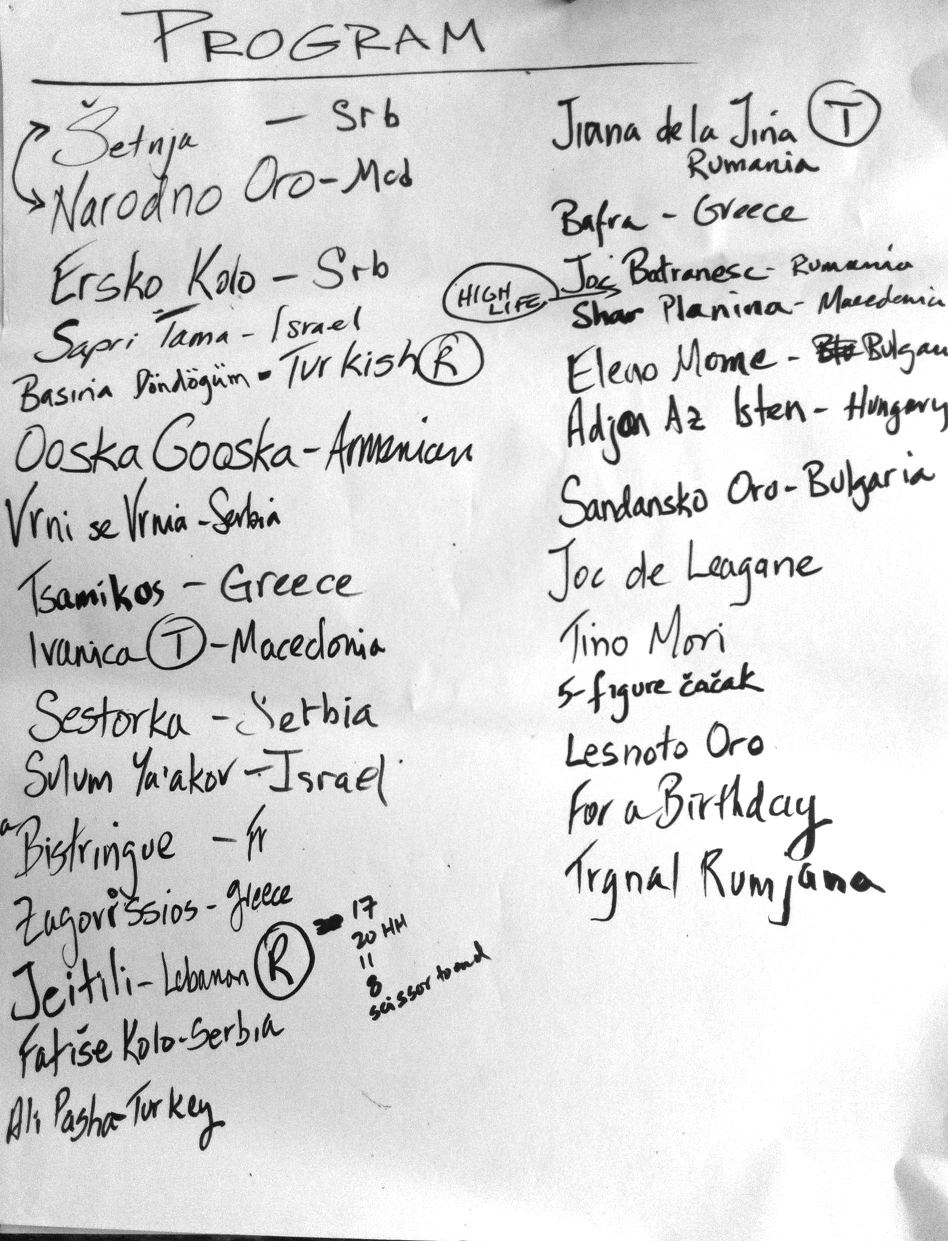 PROGRAM
Šetnja - Srb
Narodno Oro - Mcd
Ersko Kolo - Srb
Sapri Tama - Israel
Basiria Döndögüm - Turkish R
Ooska Gooska - Armenian
Vrni se Vrnia - Serbia
Tsamikos - Greece
Ivanica T - Macedonia
Sestorka - Serbia
Sulum Ya'akov - Israel
Bistringue - Fr
Zagorissios - greece
Jeitili - Lebanon R
17
20 HH
11
8
scissor to end
Fatiše Kolo - Serbia
Ali Pasha - Turkey
Jiana de la Jina T
Rumania
Bafra - Greece
HIGH LIFE
Joc Batranesc - Rumania
Shar Planina - Macedonia
Eleno Mome - Bulgari
Adjon Az Isten - Hungary
Sandansko Oro - Bulgaria
Joc de Leagane
Tino Mori
5-figure čačak
Lesnoto Oro
For a Birthday
Trgnal Rumjana